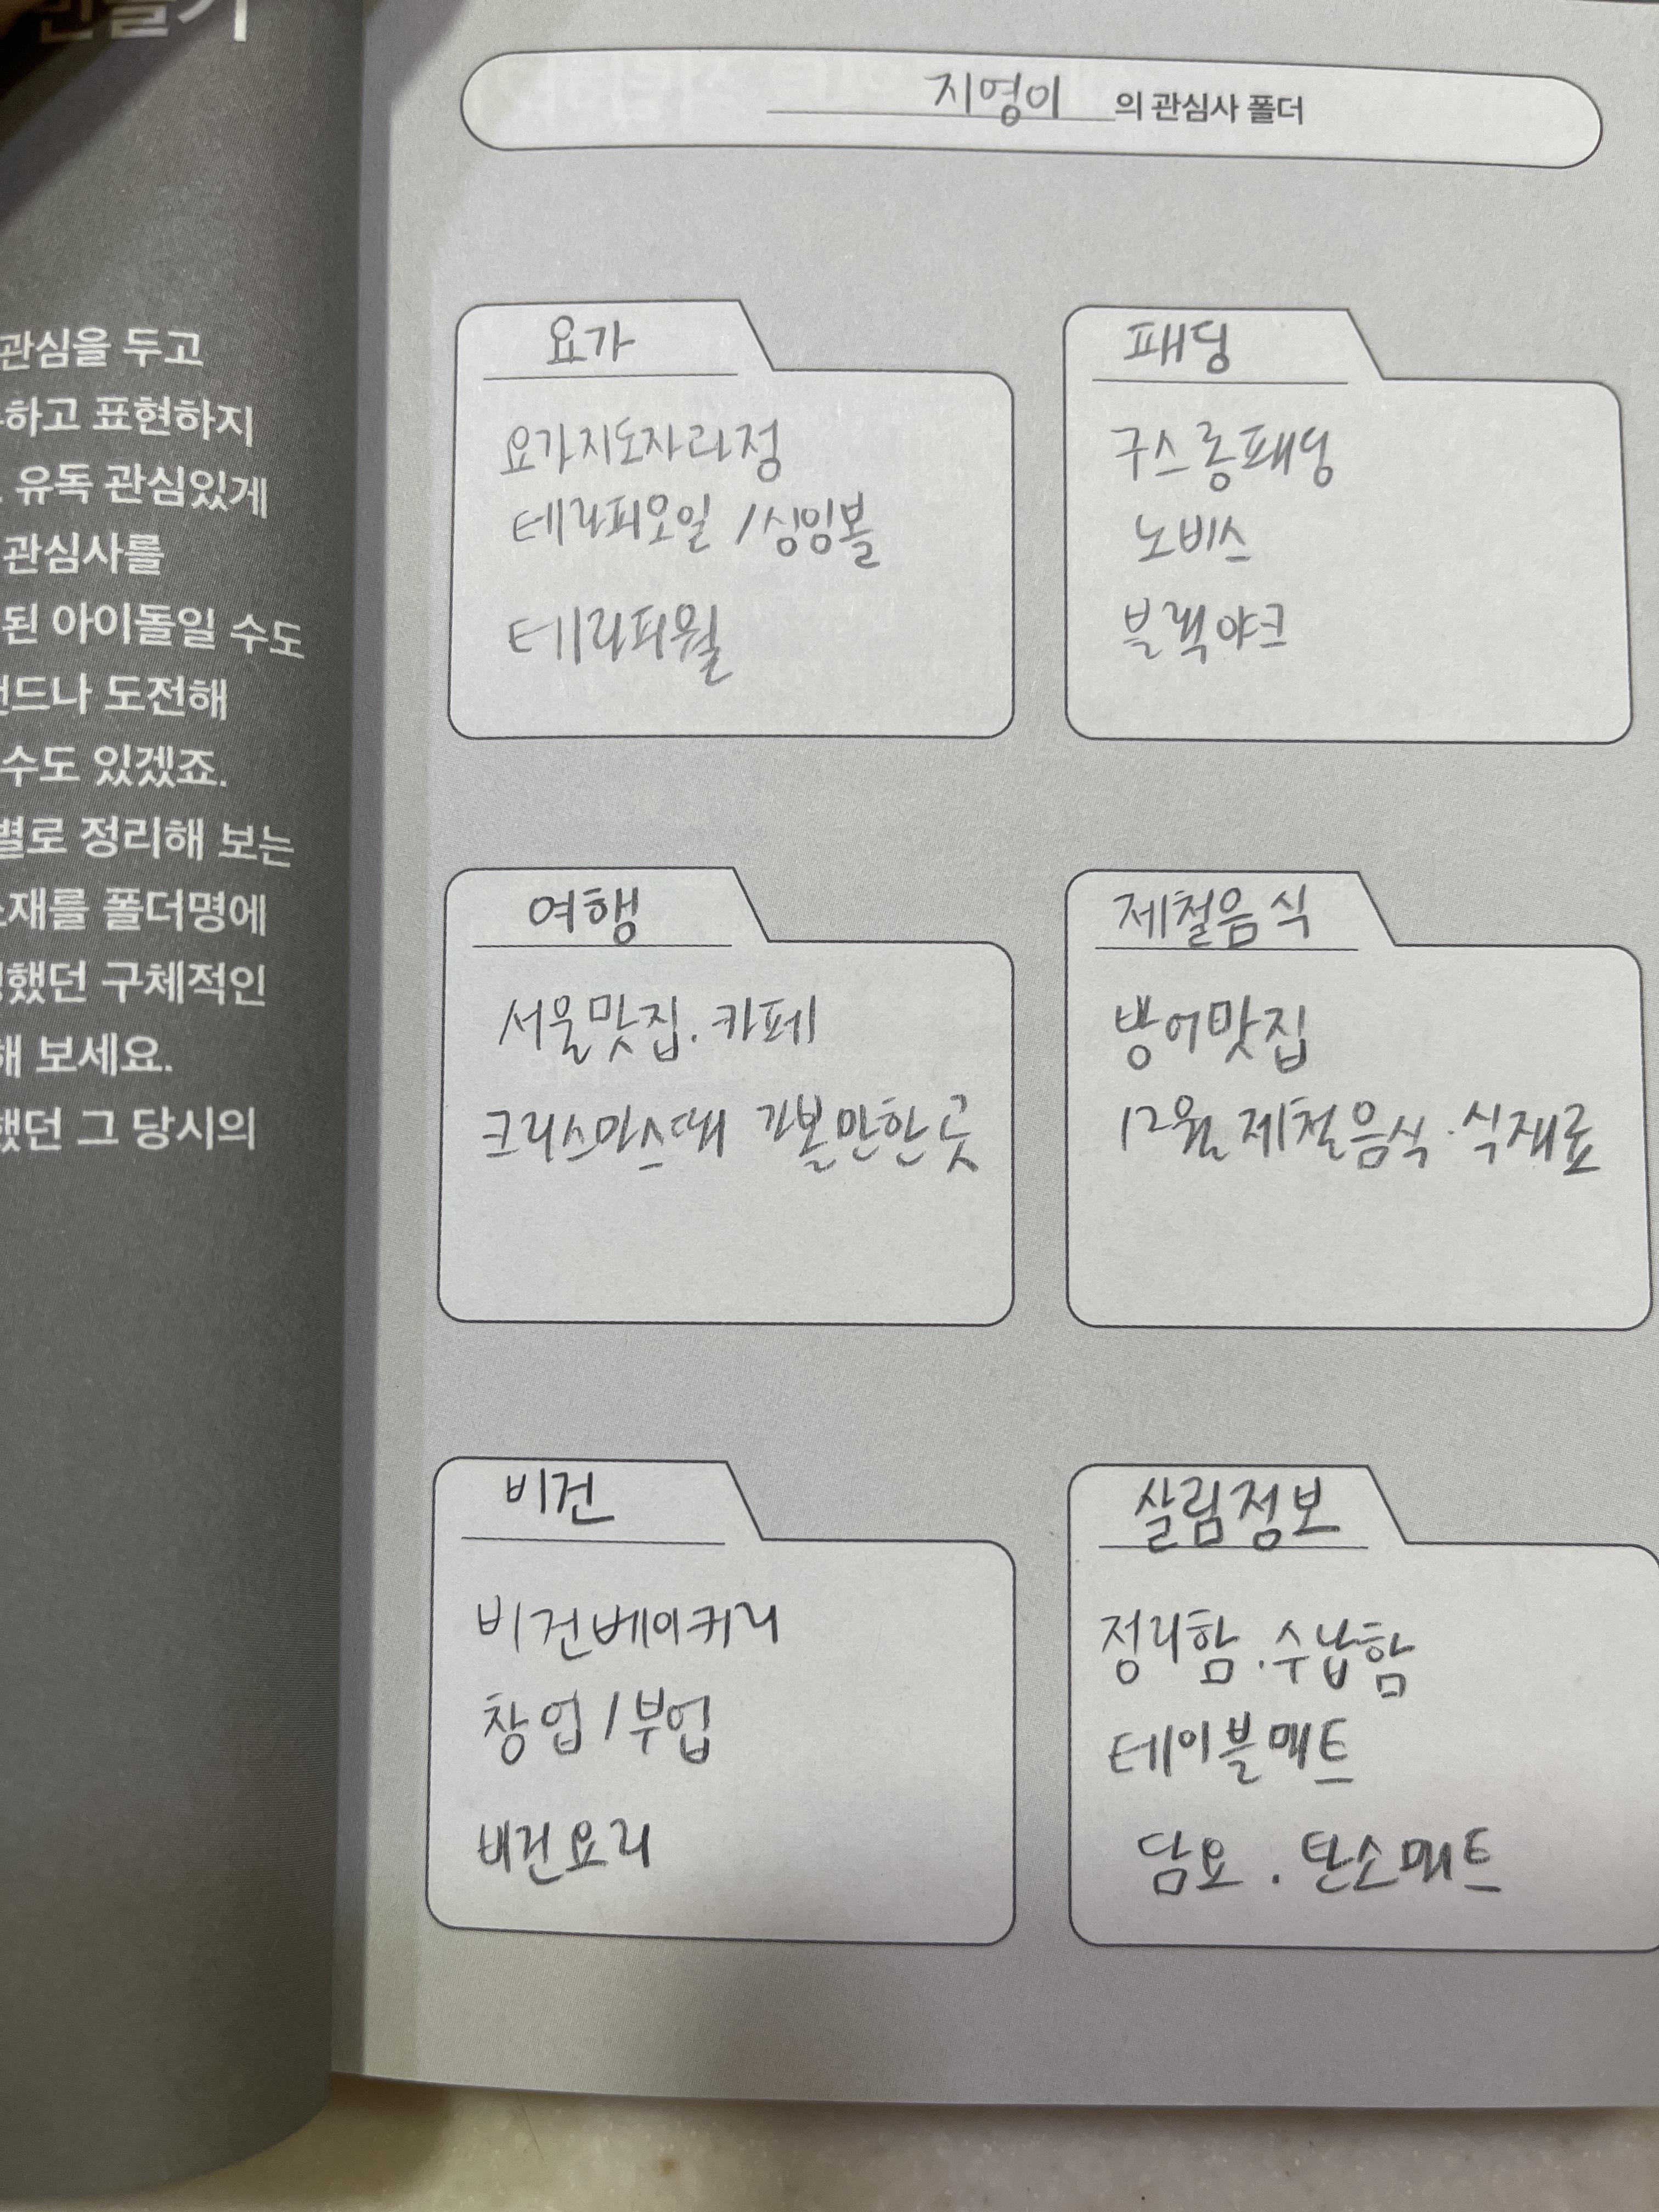 만들기
관심을 두고
하고 표현하지
유독 관심있게
관심사를
된 아이돌일 수도
랜드나 도전해
수도 있겠죠.
별로 정리해 보는
소재를 폴더명에
했던 구체적인
해 보세요.
했던 그 당시의
지영이 의 관심사 폴더
요가
요가지도자과정
테라피오일 / 싱잉볼
테라피월
패딩
구스롱패딩
노비스
블랙야크
여행
서울맛집.카페
크리스마스때 가볼만한곳
제철음식
방어맛집
12월 제철음식.식재료
비건
비건베이커리
창업/부업
비건요리
살림정보
정리함.수납함
테이블매트
담요.탄소매트